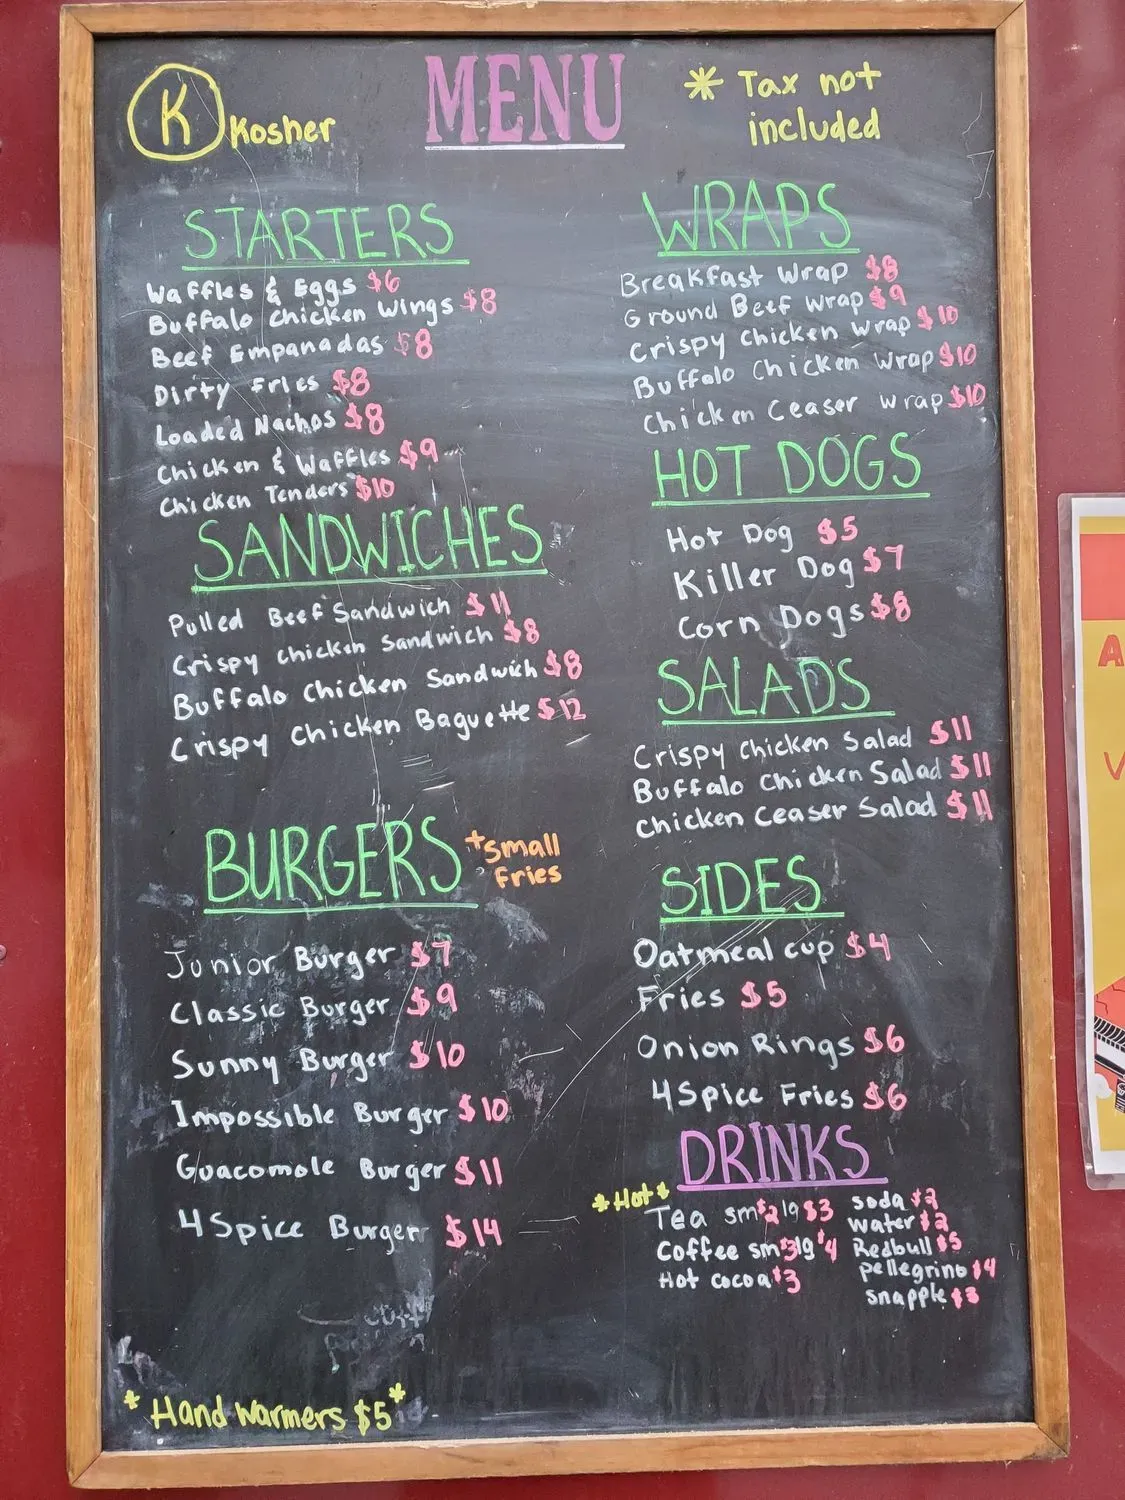 K Kosher
MENU
* Tax not
included
STARTERS
Waffles & Eggs $6
Buffalo Chicken Wings $8
Beef Empanadas $8
Dirty Fries $8
Loaded Nachos $8
Chicken & Waffles $9
Chicken Tenders $10
SANDWICHES
Pulled Beef Sandwich $11
Crispy Chicken Sandwich $8
Buffalo Chicken Sandwich $8
Crispy Chicken Baguette $12
BURGERS
+Small
Fries
Junior Burger $7
Classic Burger $9
Sunny Burger $10
Impossible Burger $10
Guacomole Burger $11
4 Spice Burger $14
*Hand warmers $5*
WRAPS
Breakfast Wrap $8
Ground Beef Wrap $9
Crispy Chicken Wrap $10
Buffalo Chicken Wrap $10
Chicken Ceaser Wrap $10
HOT DOGS
Hot Dog $5
Killer Dog $7
Corn Dogs $8
SALADS
Crispy Chicken Salad $11
Buffalo Chicken Salad $11
Chicken Ceaser Salad $11
SIDES
Oatmeal cup $4
Fries $5
Onion Rings $6
4 Spice Fries $6
DRINKS
*Hot*
Tea sm $2 lg $3
Coffee sm $3 lg $4
Hot cocoa $3
soda $2
water $2
Redbull $5
pellegrino $4
snapple $3